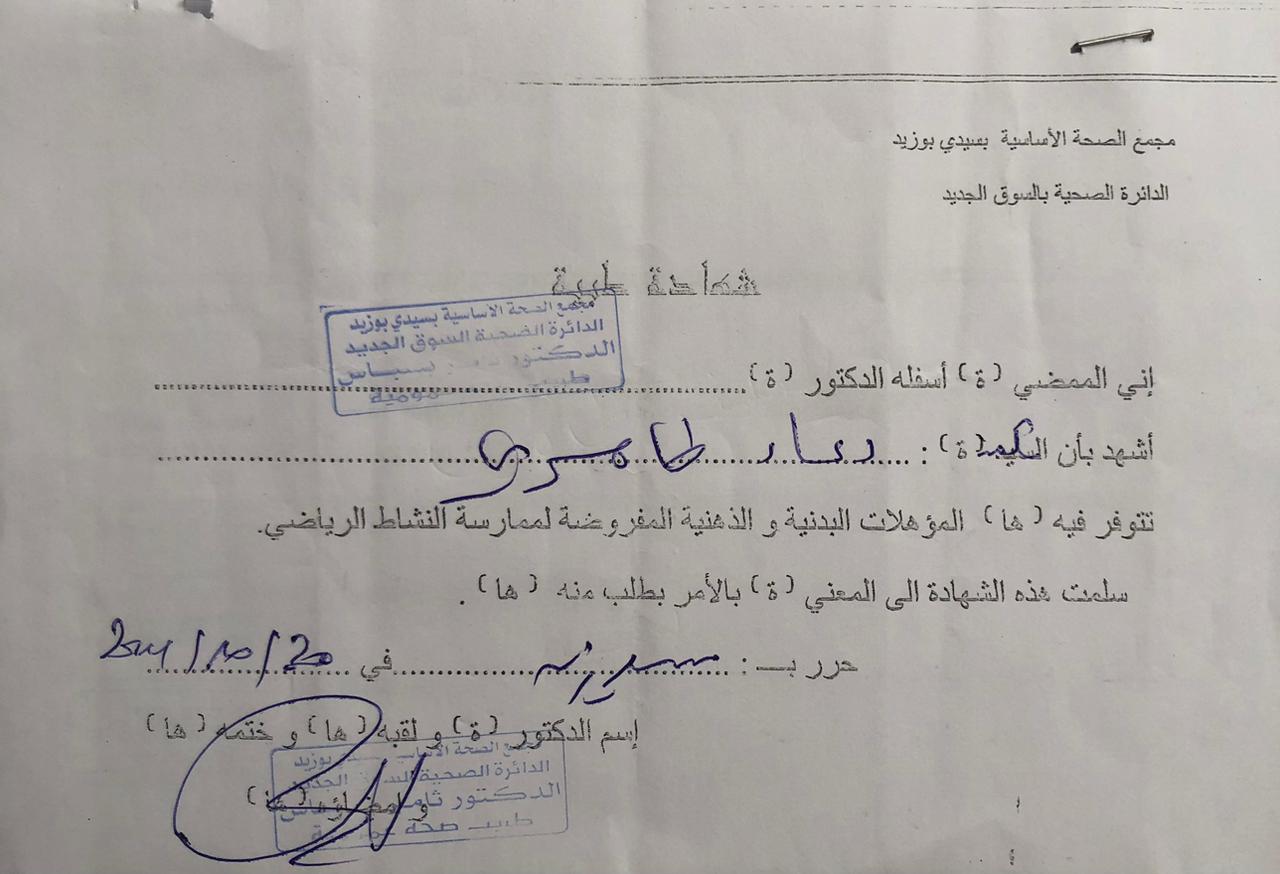 مجمع الصحة الأساسية بسيدي بوزيد
الدائرة الصحية بالسوق الجديد
شهادة طبية
مجمع الصحة الاساسية بسيدي بوزيد
الدائرة الصحية السوق الجديد
الدكتور
طبيب
إني الممضي (ة) أسفله الدكتور (ة)
أشهد بأن (ة) :
تتوفر فيه (ها) المؤهلات البدنية و الذهنية المفروضة لممارسة النشاط الرياضي.
سلمت هذه الشهادة الى المعني (ة) بالأمر بطلب منه (ها) .
حرر بـ : في
إسم الدكتور (ة) و لقبه (ها) و ختمه (ها)
الصحة بوزيد
الدائرة الصحية الجديد
الدكتور
طبيب صحة
(ها)